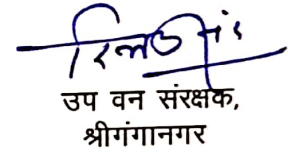 उप वन संरक्षक,
श्रीगंगानगर